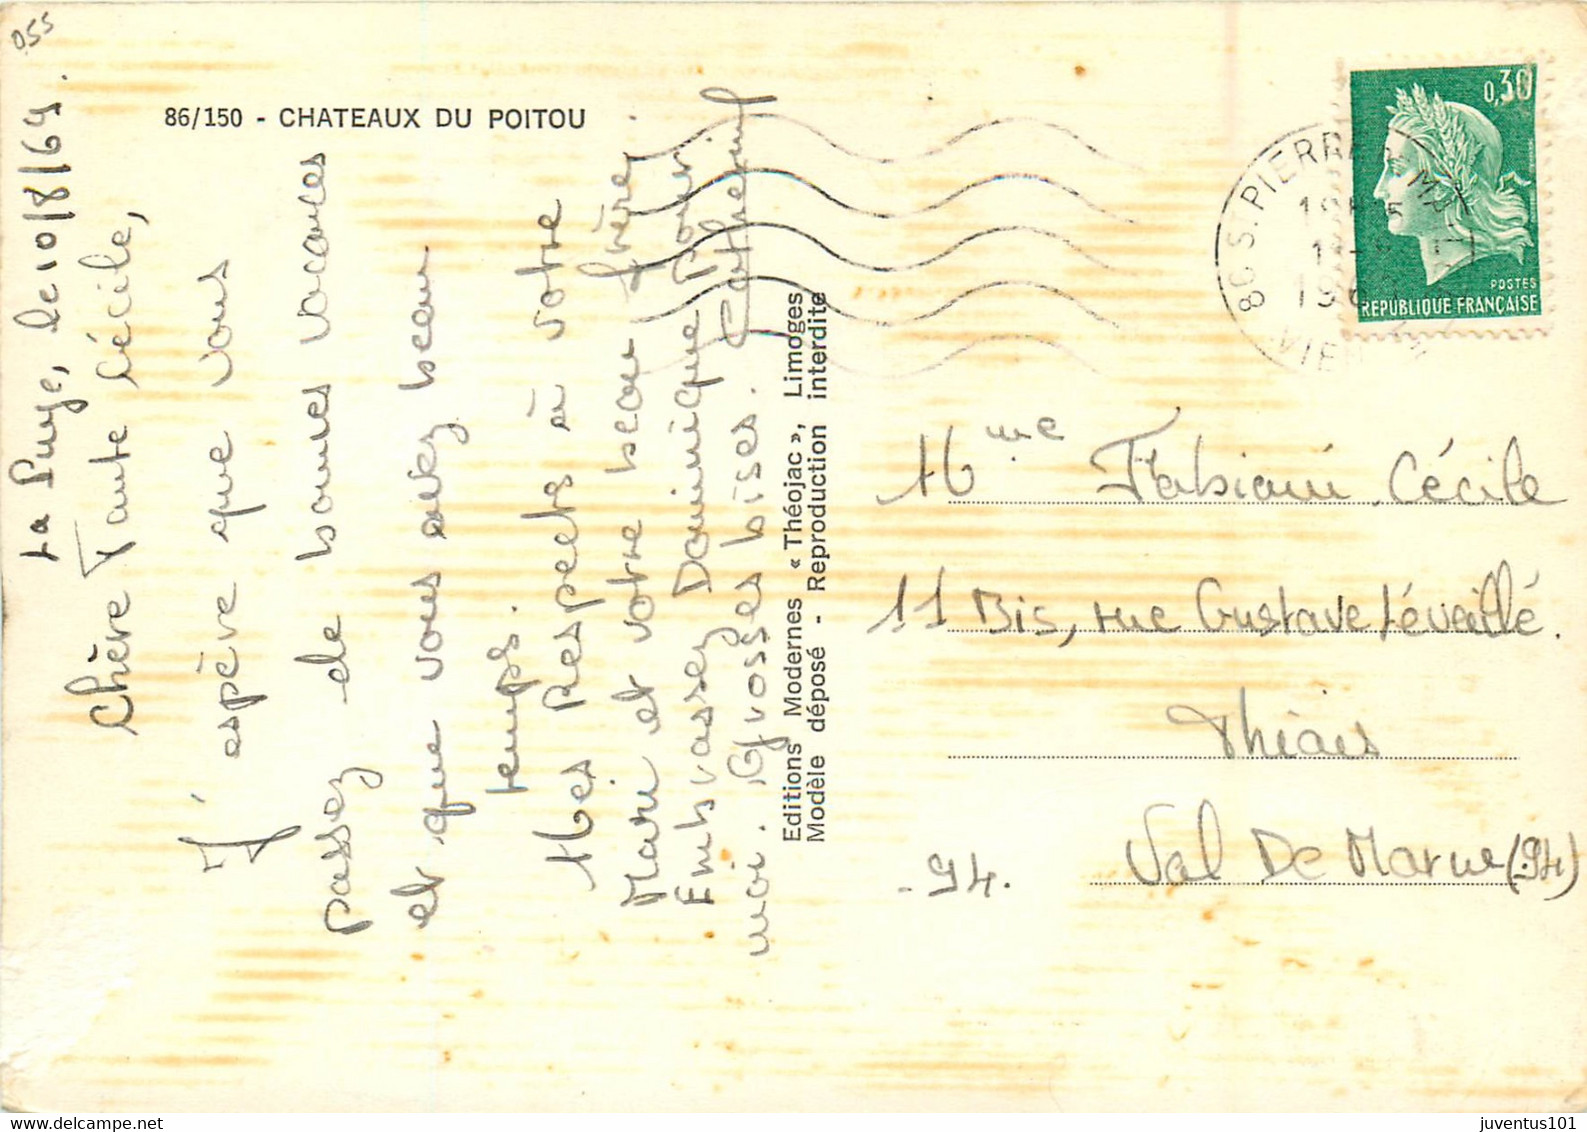 055
86/150 - CHATEAUX DU POITOU
La Puye, le 10/8/69.
Chère Tante Cécile,
J'
espère que vous
passez de bonnes vacances
et que vous avez beau
temps.
Mes Respects à votre
Mari et votre beau frère.
Embrassez Dominique Pour
moi. Grosses bises. Catherine
Editions Modernes « Théojac », Limoges
Modèle déposé - Reproduction interdite
0,30
POSTES
REPUBLIQUE FRANÇAISE
86 S. PIERRE
VIENNE
Mme Fabiani Cécile
11 Bis, rue Gustave Léveillé.
Thiais
Val De Marne (94)
- 94.
delcampe.net
juventus101